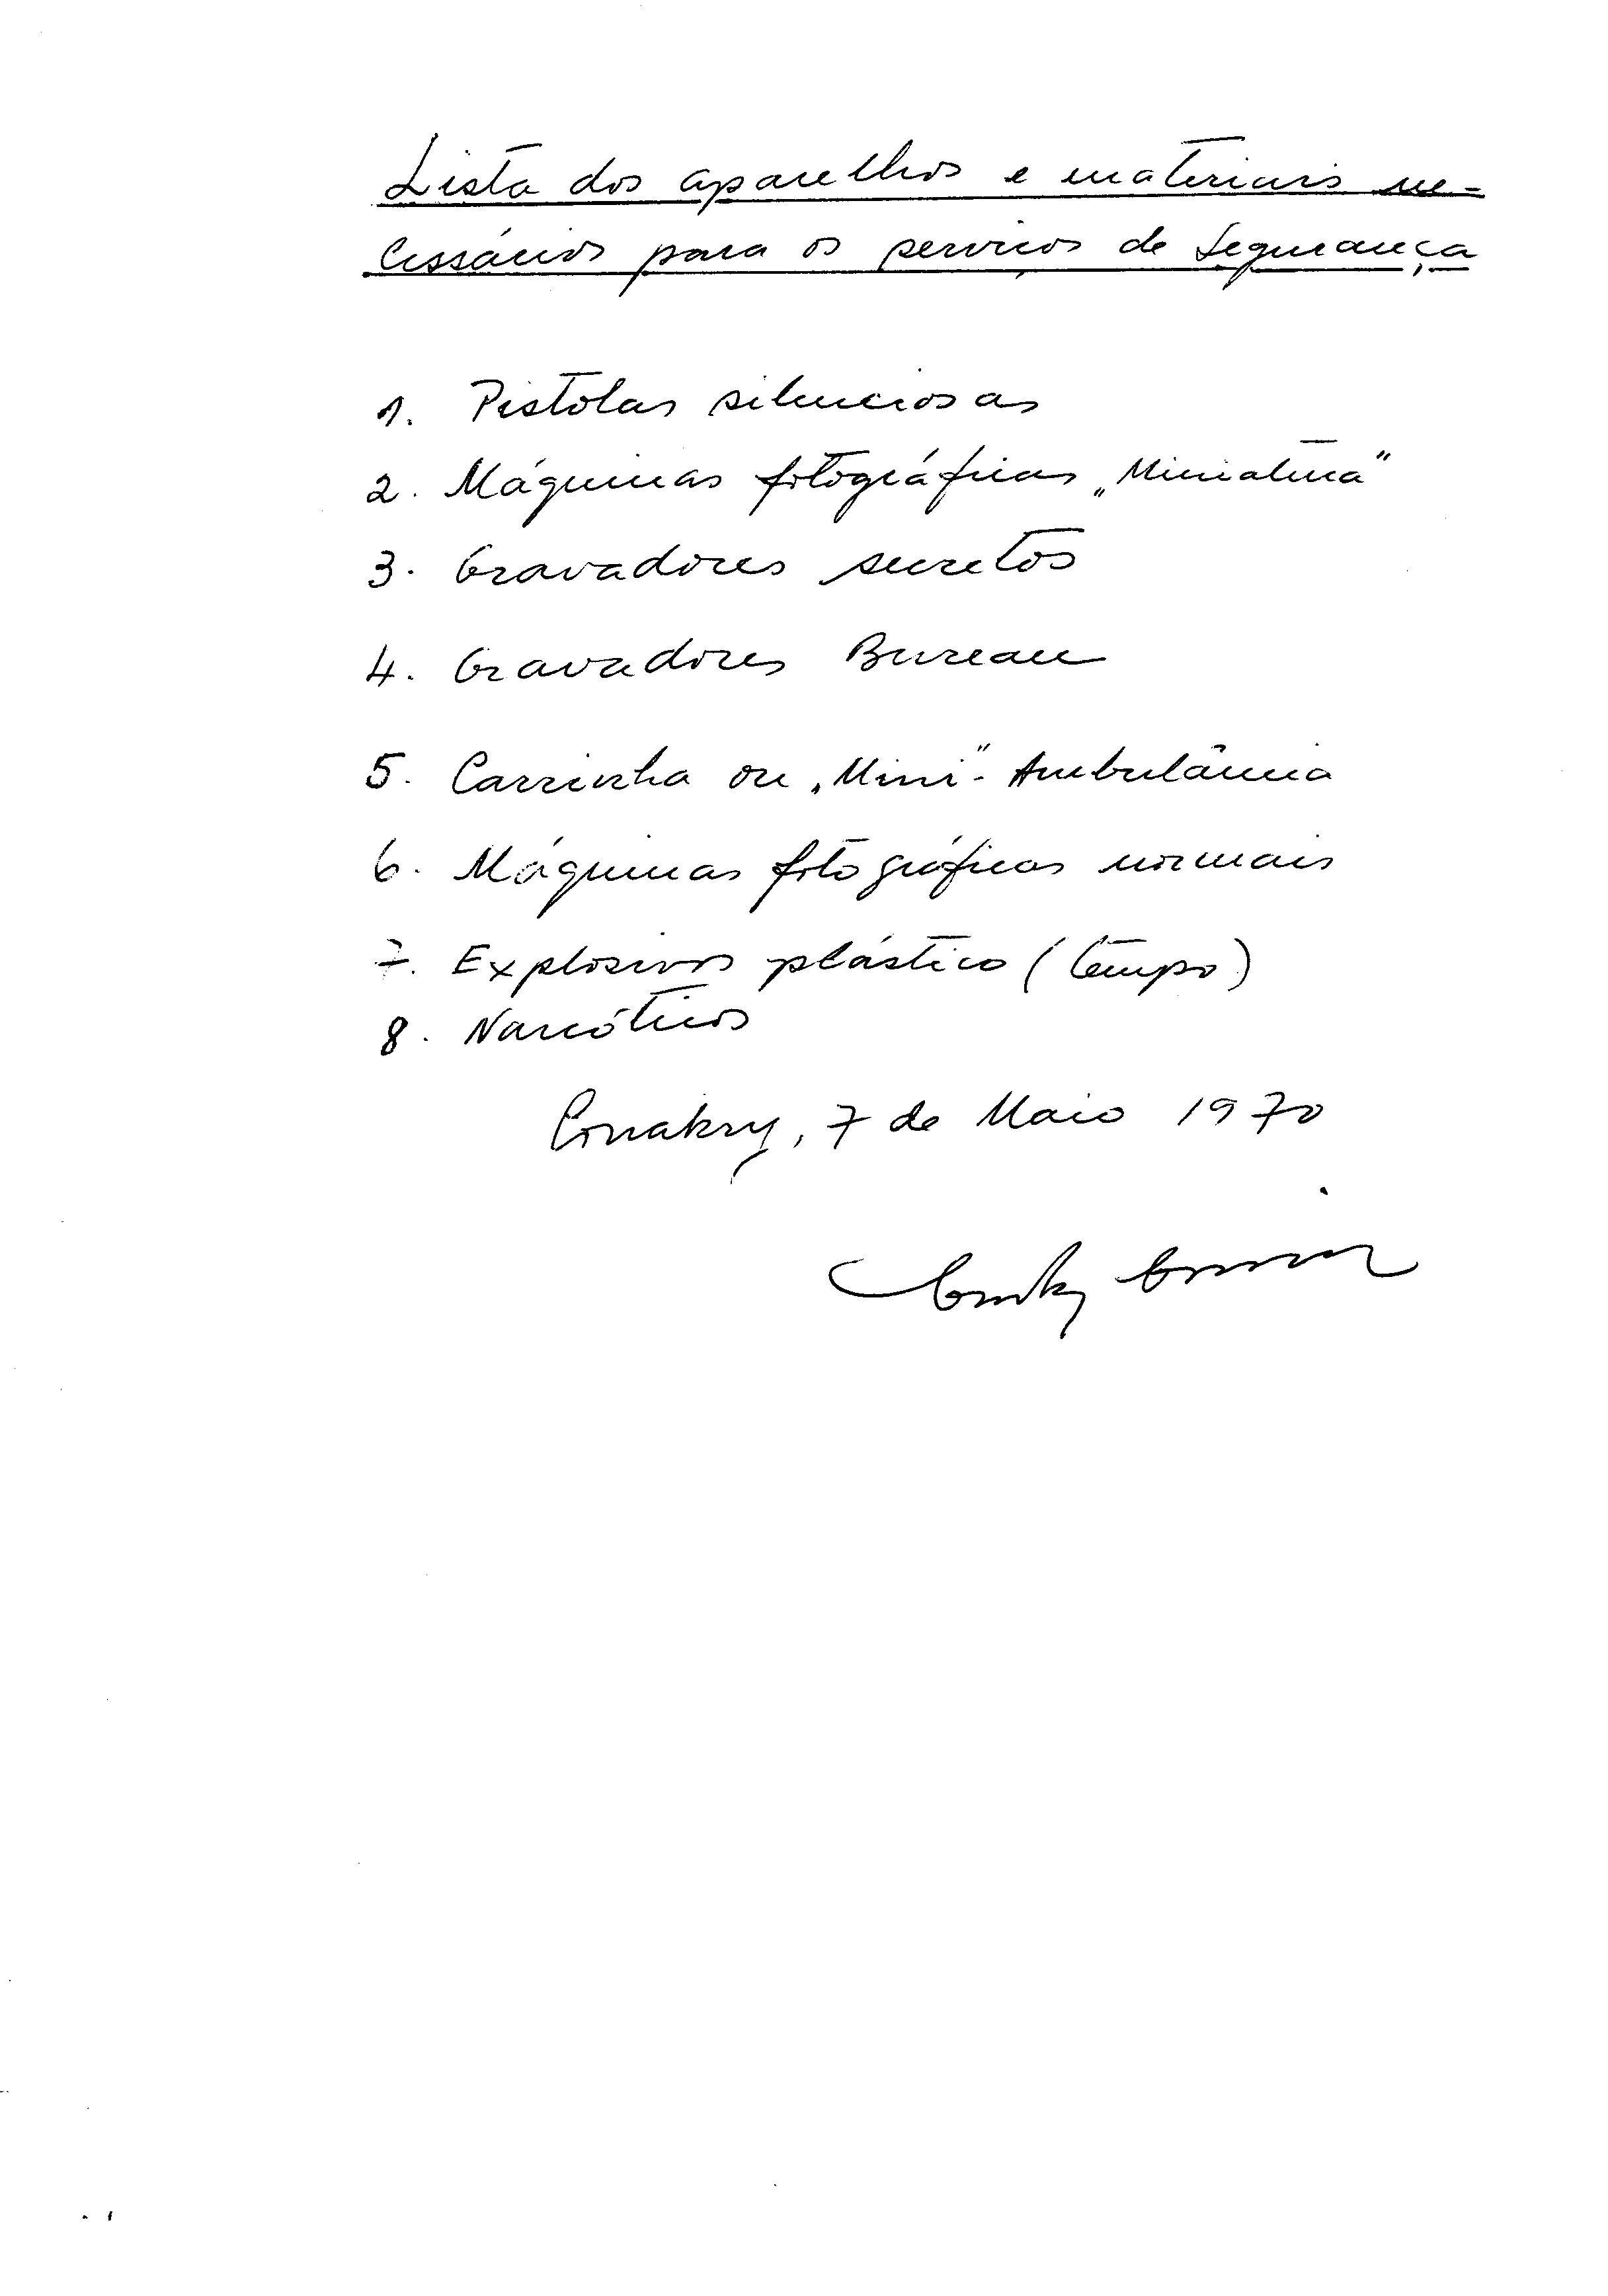 Lista dos aparelhos e materiais ne-
cessários para os serviços de Segurança
1. Pistolas silenciosas
2. Máquinas fotográficas „Miniatura”
3. Gravadores secretos
4. Gravadores Bureau
5. Carrinha ou „Mini”-Ambulância
6. Máquinas fotográficas normais
7. Explosivos plástico (tempo)
8. Narcóticos
Conakry, 7 de Maio 1970